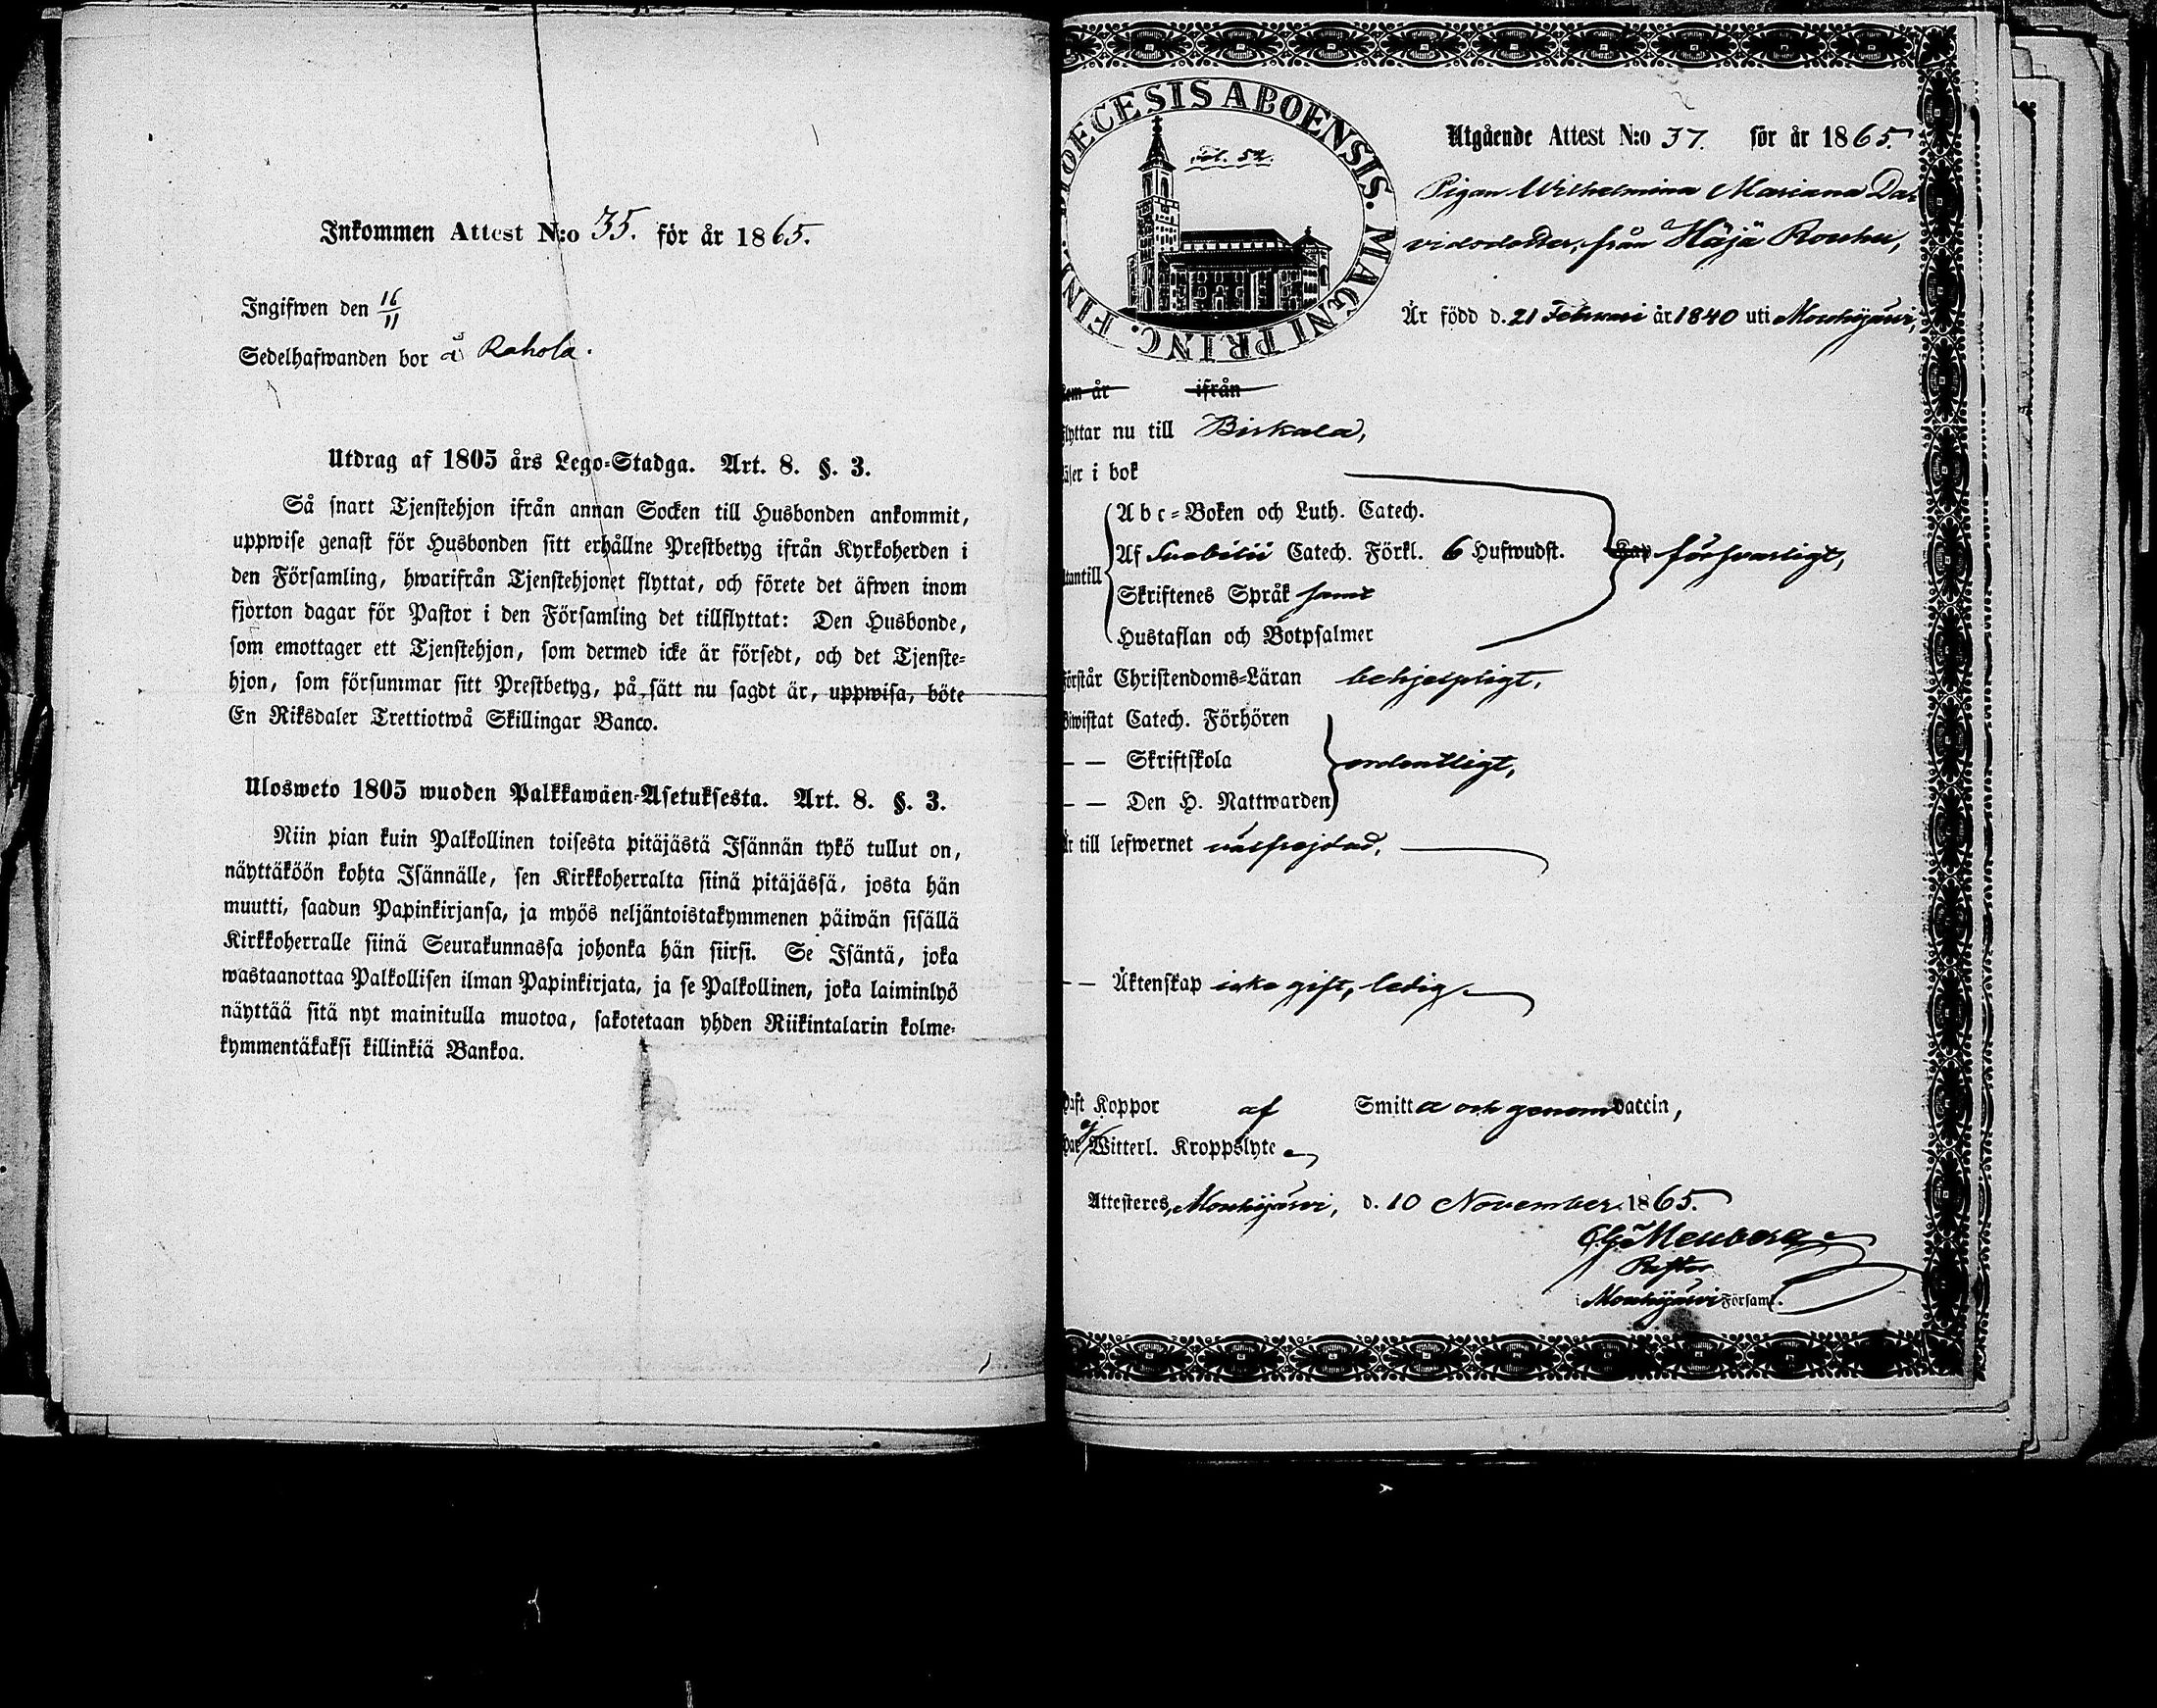 Inkommen Attest N:o 35. för år 1865.
Ingifwen den 16/11
Sedelhafwanden bor å Rahola.
Utdrag af 1805 års Lego-Stadga. Art. 8. §. 3.
Så snart Tjenstehjon ifrån annan Socken till Husbonden ankommit,
uppwise genast för Husbonden sitt erhållne Prestbetyg ifrån Kyrkoherden i
den Församling, hwarifrån Tjenstehjonet flyttat, och förete det äfwen inom
fjorton dagar för Pastor i den Församling det tillflyttat: Den Husbonde,
som emottager ett Tjenstehjon, som dermed icke är försedt, och det Tjenste-
hjon, som försummar sitt Prestbetyg, på sätt nu sagdt är, uppwisa, böte
En Riksdaler Trettiotwå Skillingar Banco.
Ulosweto 1805 wuoden Palkkawäen-Asetuksesta. Art. 8. §. 3.
Niin pian kuin Palkollinen toisesta pitäjästä Isännän tykö tullut on,
näyttäköön kohta Isännälle, sen Kirkkoherralta siinä pitäjässä, josta hän
muutti, saadun Papinkirjansa, ja myös neljäntoistakymmenen päiwän sisällä
Kirkkoherralle siinä Seurakunnassa johonka hän siirsi. Se Isäntä, joka
wastaanottaa Palkollisen ilman Papinkirjata, ja se Palkollinen, joka laiminlyö
näyttää sitä nyt mainitulla muotoa, sakotetaan yhden Riikintalarin kolme-
kymmentäkaksi killinkiä Bankoa.
DIOECESIS ABOENSIS. MAGNI PRINC. FINL.
Fol. 52.
Utgående Attest N:o 37. för år 1865.
Pigan Wilhelmina Mariana Da-
vidsdotter, från Häjä Rouhu,
Är född d. 21 Februari år 1840 uti Mouhijärvi,
kom år ifrån
flyttar nu till Birkala,
Läser i bok
Abc-Boken och Luth. Catech.
Af Svebilii Catech. Förkl. 6 Hufwudst. försvarligt,
utantill
Skriftenes Språk samt
Hustaflan och Botpsalmer
Förstår Christendoms-Läran behjelpligt,
Biwistat Catech. Förhören
— — Skriftskola ordentligt,
— — Den H. Nattwarden
Är till lefwernet välfrejdad,
— — Äktenskap icke gift, ledig
Haft Koppor af Smitta och genom vaccin,
Har ej Witterl. Kroppslyte
Attesteres, Mouhijärvi, d. 10 November 1865.
Pastor
i Mouhijärvi Församl.